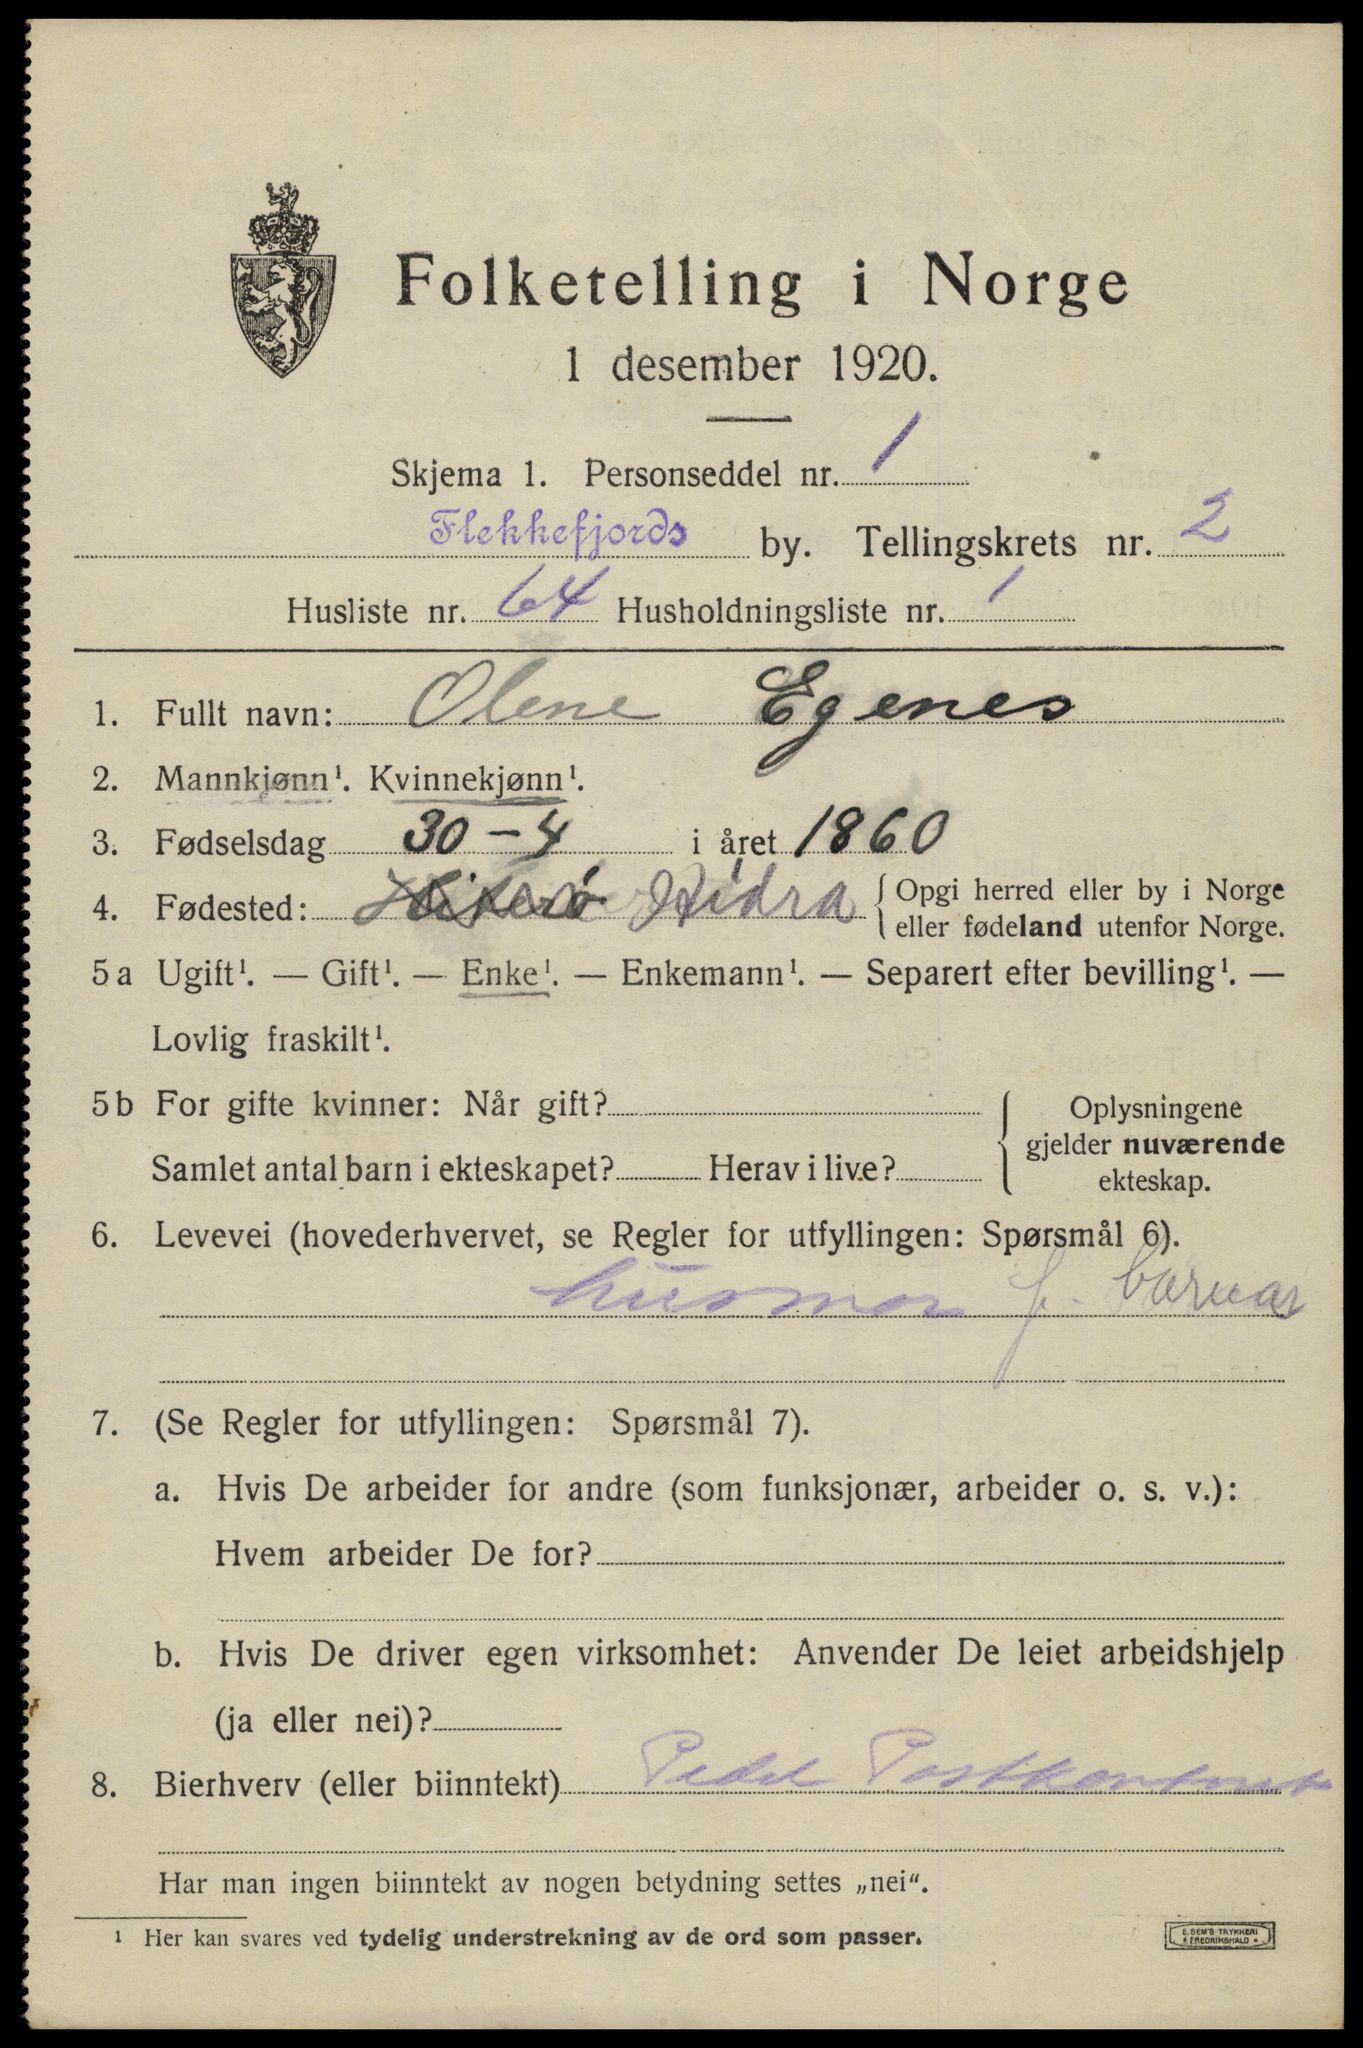 Folketelling i Norge
1 desember 1920.
Skjema 1. Personseddel nr. 1
Flekkefjords by. Tellingskrets nr. 2
Husliste nr. 64 Husholdningsliste nr. 1
1. Fullt navn: Olene Egenes
2. Mannkjønn¹. Kvinnekjønn¹.
3. Fødselsdag 30-4 i året 1860
4. Fødested: Hiterø Hidra { Opgi herred eller by i Norge
eller fødeland utenfor Norge.
5a Ugift¹. — Gift¹. — Enke¹. — Enkemann¹. — Separert efter bevilling¹. —
Lovlig fraskilt¹.
5b For gifte kvinner: Når gift? { Oplysningene
gjelder nuværende
ekteskap.
Samlet antal barn i ekteskapet? Herav i live?
6. Levevei (hovederhvervet, se Regler for utfyllingen: Spørsmål 6).
husmor f.
7. (Se Regler for utfyllingen: Spørsmål 7).
a. Hvis De arbeider for andre (som funksjonær, arbeider o. s. v.):
Hvem arbeider De for?
b. Hvis De driver egen virksomhet: Anvender De leiet arbeidshjelp
(ja eller nei)?
8. Bierhverv (eller biinntekt) Pedel Postkontoret
Har man ingen biinntekt av nogen betydning settes „nei“.
¹ Her kan svares ved tydelig understrekning av de ord som passer.
E. SEM'S TRYKKERI
FREDRIKSHALD